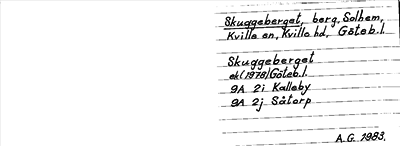 Skuggeberget, berg, Solhem,
Kville sn, Kville hd, Göteb.l.
Skuggeberget
ek (1978) Göteb.l.
9A 2i Kalleby
9A 2j Såtorp
A.G. 1983.